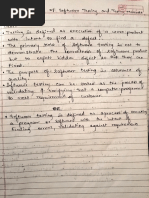 of Software Testing and Testing Methods
Testing is defined as execution of a work product
with intent to find a defect.
The primary role of software testing is not to
demonstrate the correctness of software product
but to expose hidden defect so that they can
fixed.
The purpose of Software testing is assurance of
quality.
Software testing can be stated as the process of
validating & verifying that a computer program
to meet requirement of customer.
OR
Software testing is defined as process of executing
a program or software with the intent of
finding errors, validating against requirement